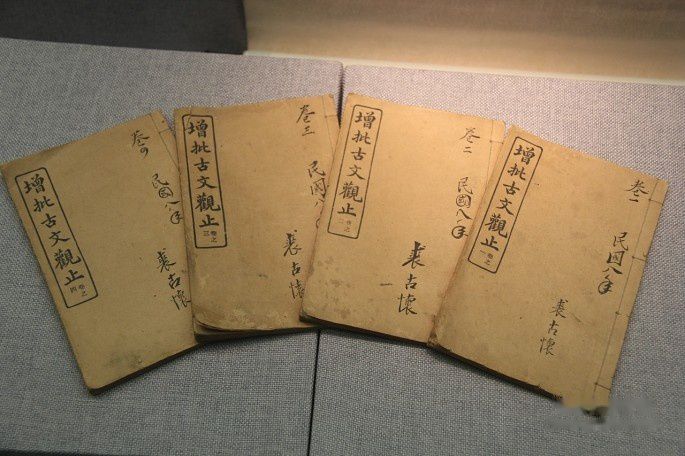 增批古文觀止 卷之四
卷四
民國八年
裘古懷
增批古文觀止 卷之三
卷三
民國八年
裘古懷
增批古文觀止 卷之二
卷二
民國八年
裘古懷
增批古文觀止 卷之一
卷一
民國八年
裘古懷